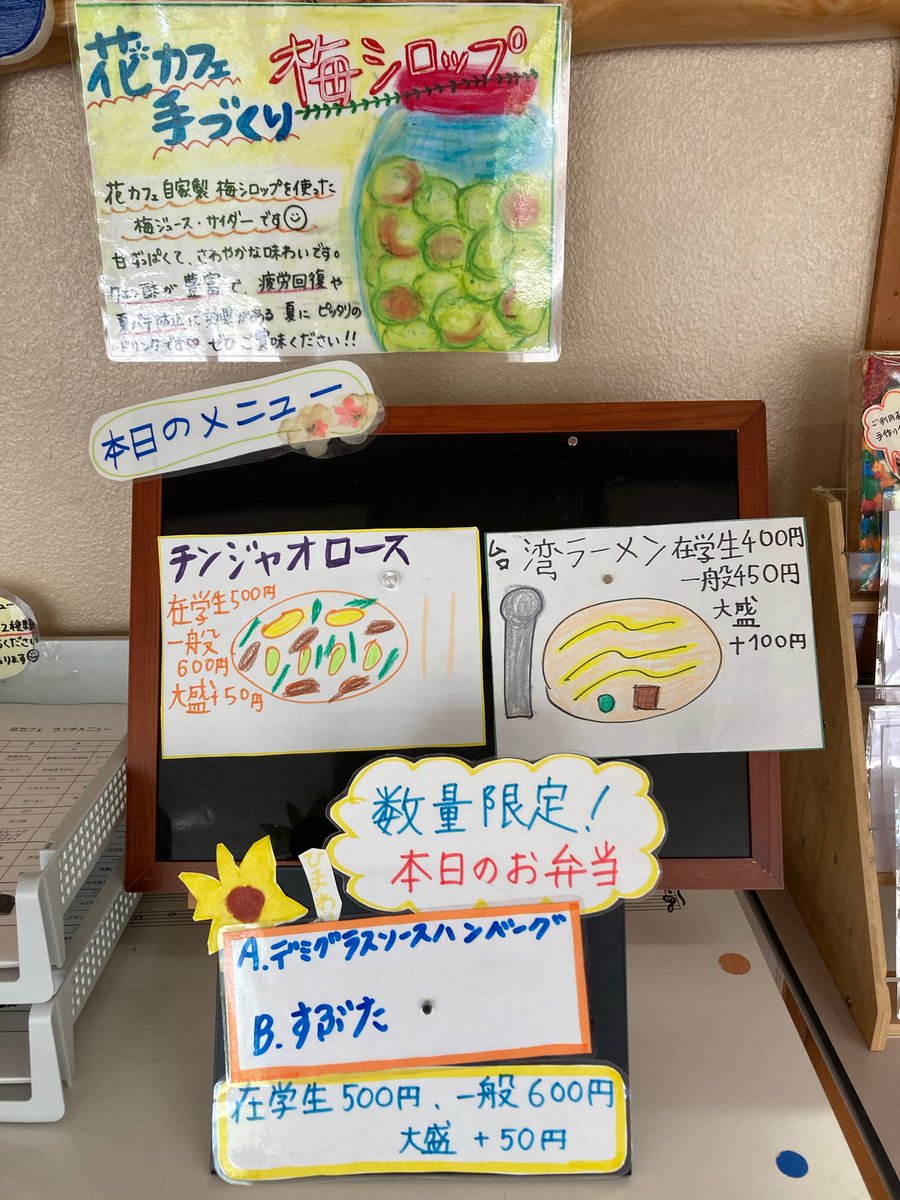 花カフェ
手づくり
梅シロップ
花カフェ自家製 梅シロップを使った
梅ジュース・サイダーです
甘ずっぱくて、さわやかな味わいです。
クエン酸が豊富で、疲労回復や
夏バテ防止に効果がある 夏に ピッタリの
ドリンクです♡ ぜひご賞味ください!!
本日のメニュー
チンジャオロース
在学生500円
一般
600円
大盛+50円
台湾ラーメン 在学生400円
一般450円
大盛
+100円
数量限定!
本日のお弁当
A.デミグラスソースハンバーグ
B.すぶた
在学生500円、一般600円
大盛 +50円
花カフェ ランチメニュー